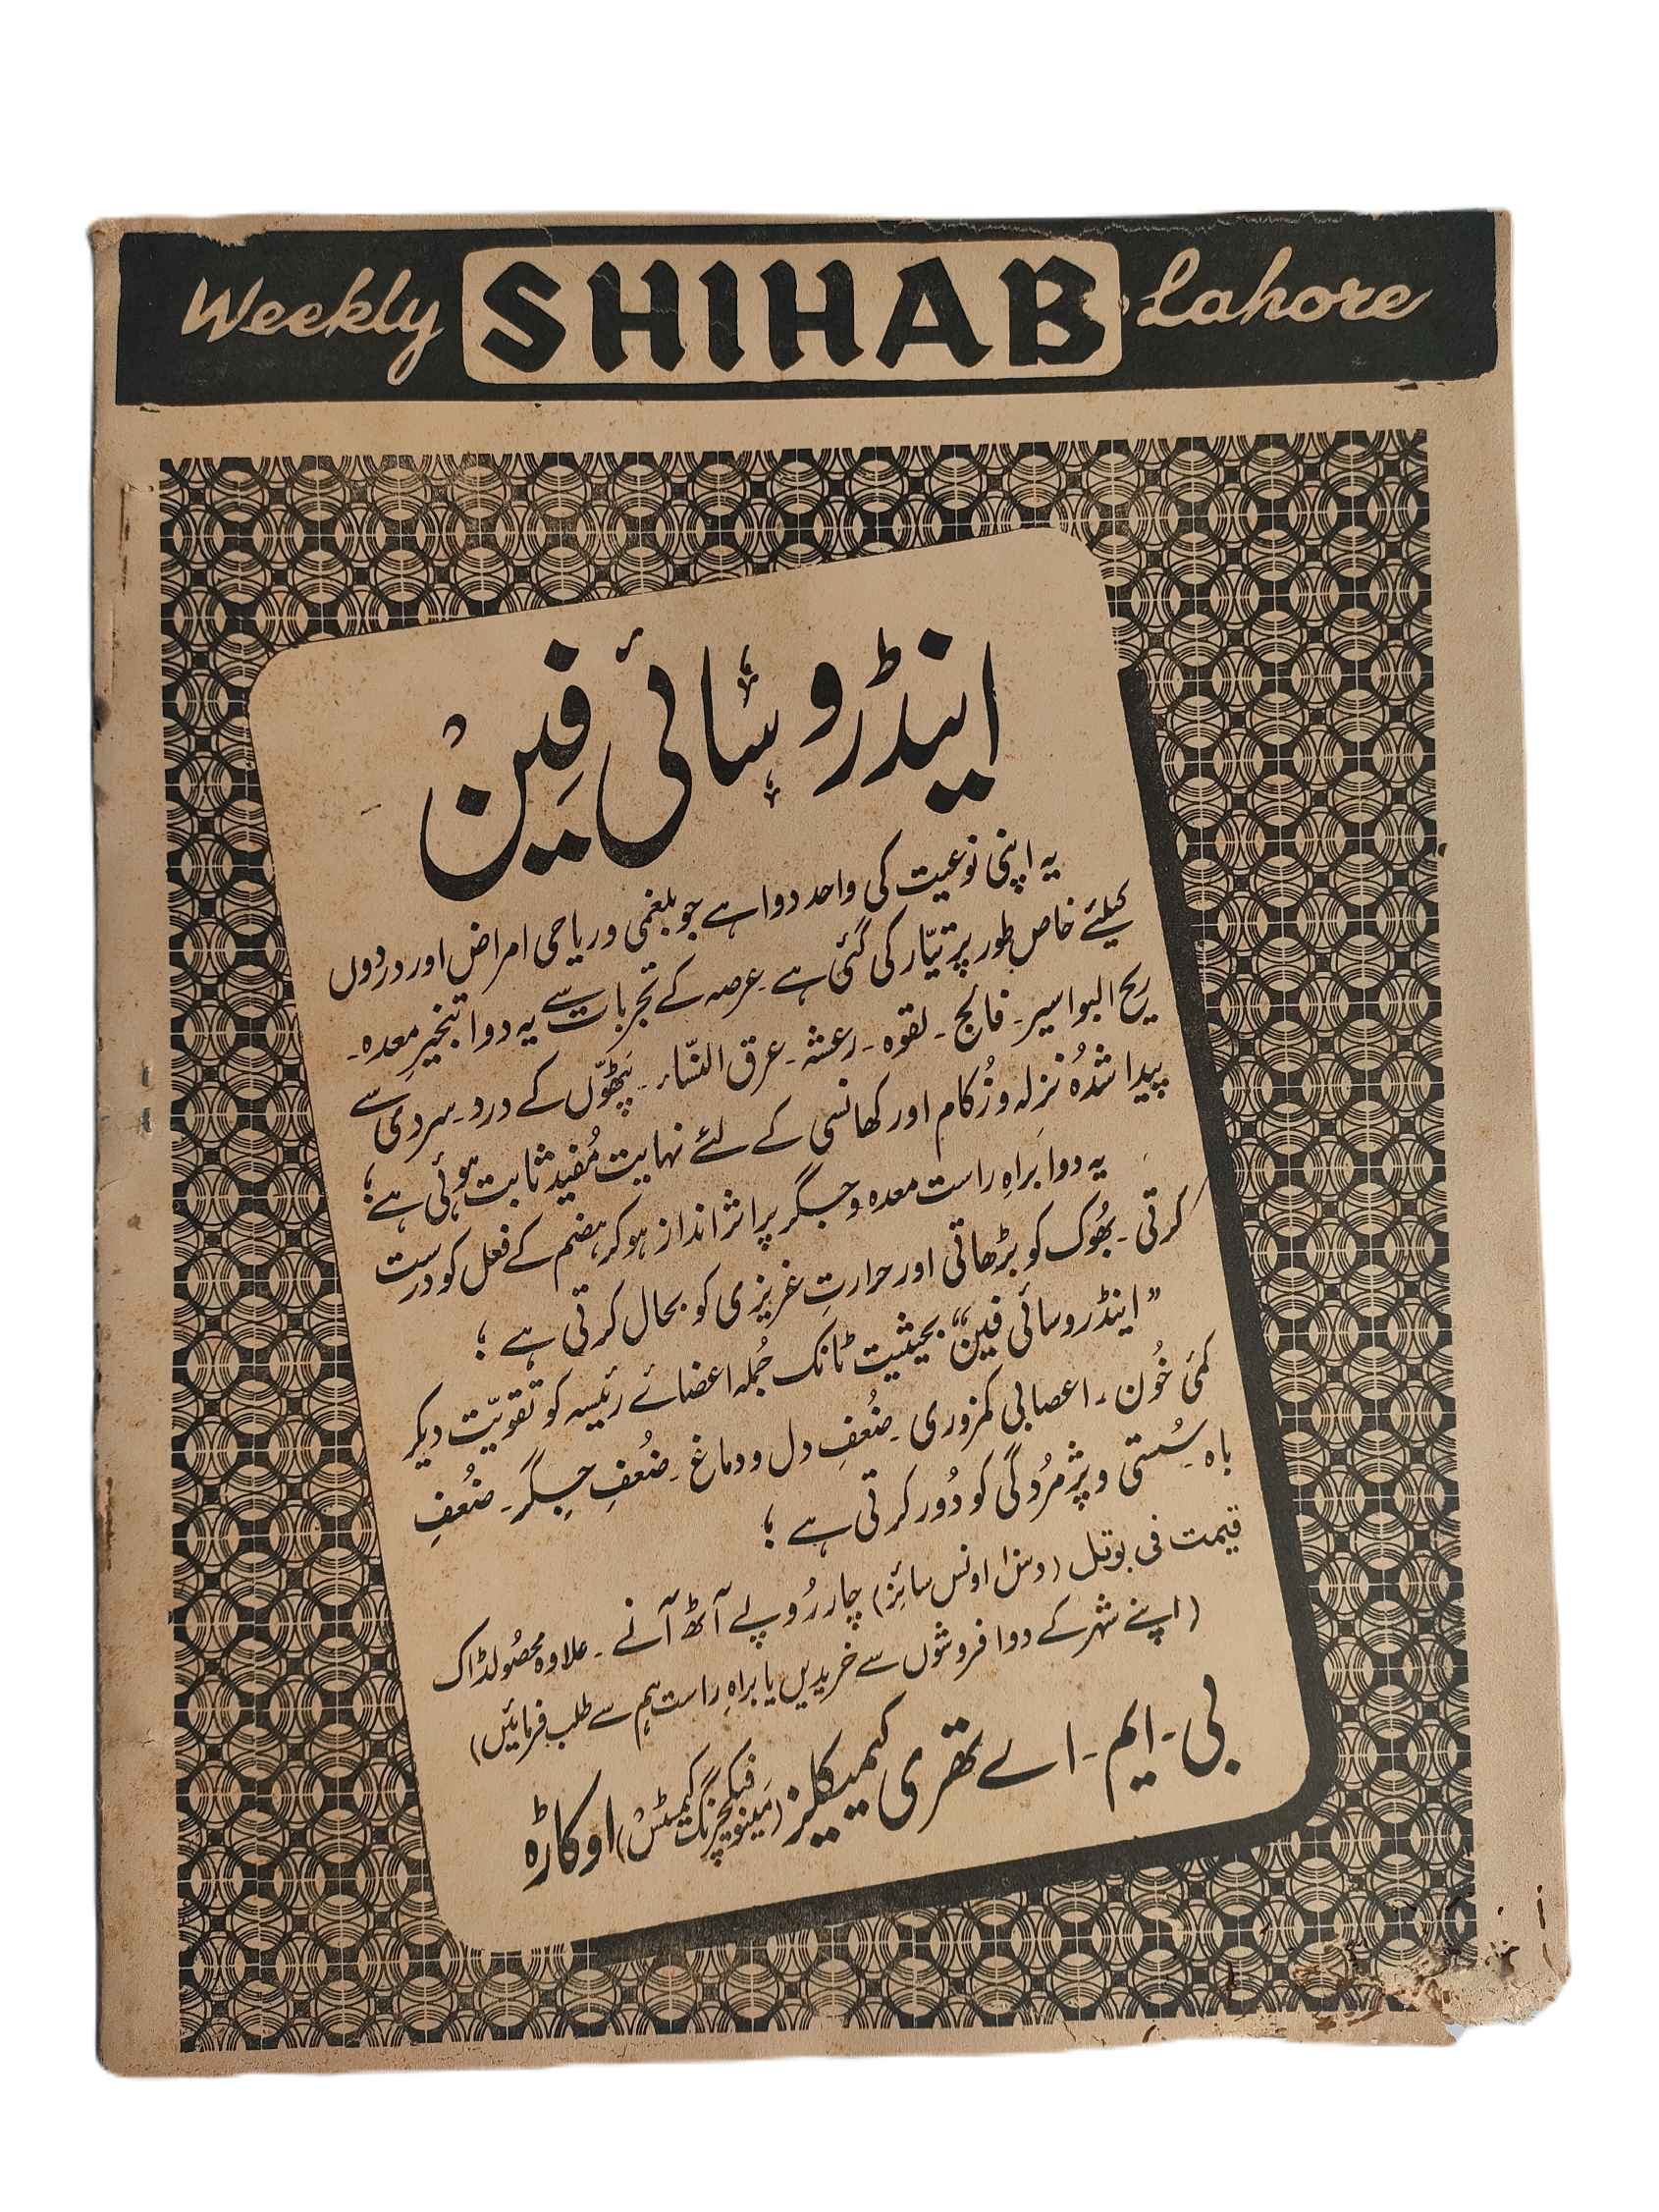 Weekly SHIHAB, Lahore
اینڈروسائی فِینْ
یہ اپنی نوعیت کی واحد دوا ہے جو بلغمی و ریاحی امراض اور دردوں
کیلئے خاص طور پر تیّار کی گئی ہے۔ عرصہ کے تجربات سے یہ دوا تبخیرِ معدہ۔
ریح البواسیر۔ فالج۔ لقوہ۔ رعشہ۔ عرق النّساء۔ پَٹھّوں کے درد۔ سردی سے
پیدا شدُہ نزلہ و زُکام اور کھانسی کے لئے نہایت مُفید ثابت ہوئی ہے؛
یہ دوا براہِ راست معدہ و جگر پر اثر انداز ہو کر ہضم کے فعل کو درست
کرتی۔ بھُوک کو بڑھاتی اور حرارتِ غریزی کو بحال کرتی ہے ؛
”اینڈروسائی فین“ بحیثیت ٹانک جُملہ اعضائے رئیسہ کو تقویّت دیکر
کمئی خُون۔ اعصابی کمزوری۔ ضُعفِ دل و دماغ۔ ضُعفِ جِگر۔ ضُعفِ
باہ۔ سُستی و پژمُردگی کو دُور کرتی ہے ؛
قیمت فی بوتل (دس۱۰ اونس سائز) چار رُوپے آٹھ آنے۔ علاوہ محصُولڈاک
(اپنے شہر کے دوا فروشوں سے خریدیں یا براہِ راست ہم سے طلب فرمائیں)
بی۔ ایم۔ اے تھری کیمیکلز (مَینوفیکچرنگ کیمسٹس) اوکاڑہ